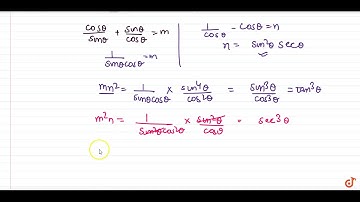 cosθ/sinθ + sinθ/cosθ = m
1/sinθcosθ = m
1/cosθ - cosθ = n
n = sin²θ secθ
mn² = 1/sinθcosθ × sin⁴θ/cos²θ = sin³θ/cos³θ = tan³θ
m²n = 1/sin²θcos²θ × sin²θ/cosθ = sec³θ